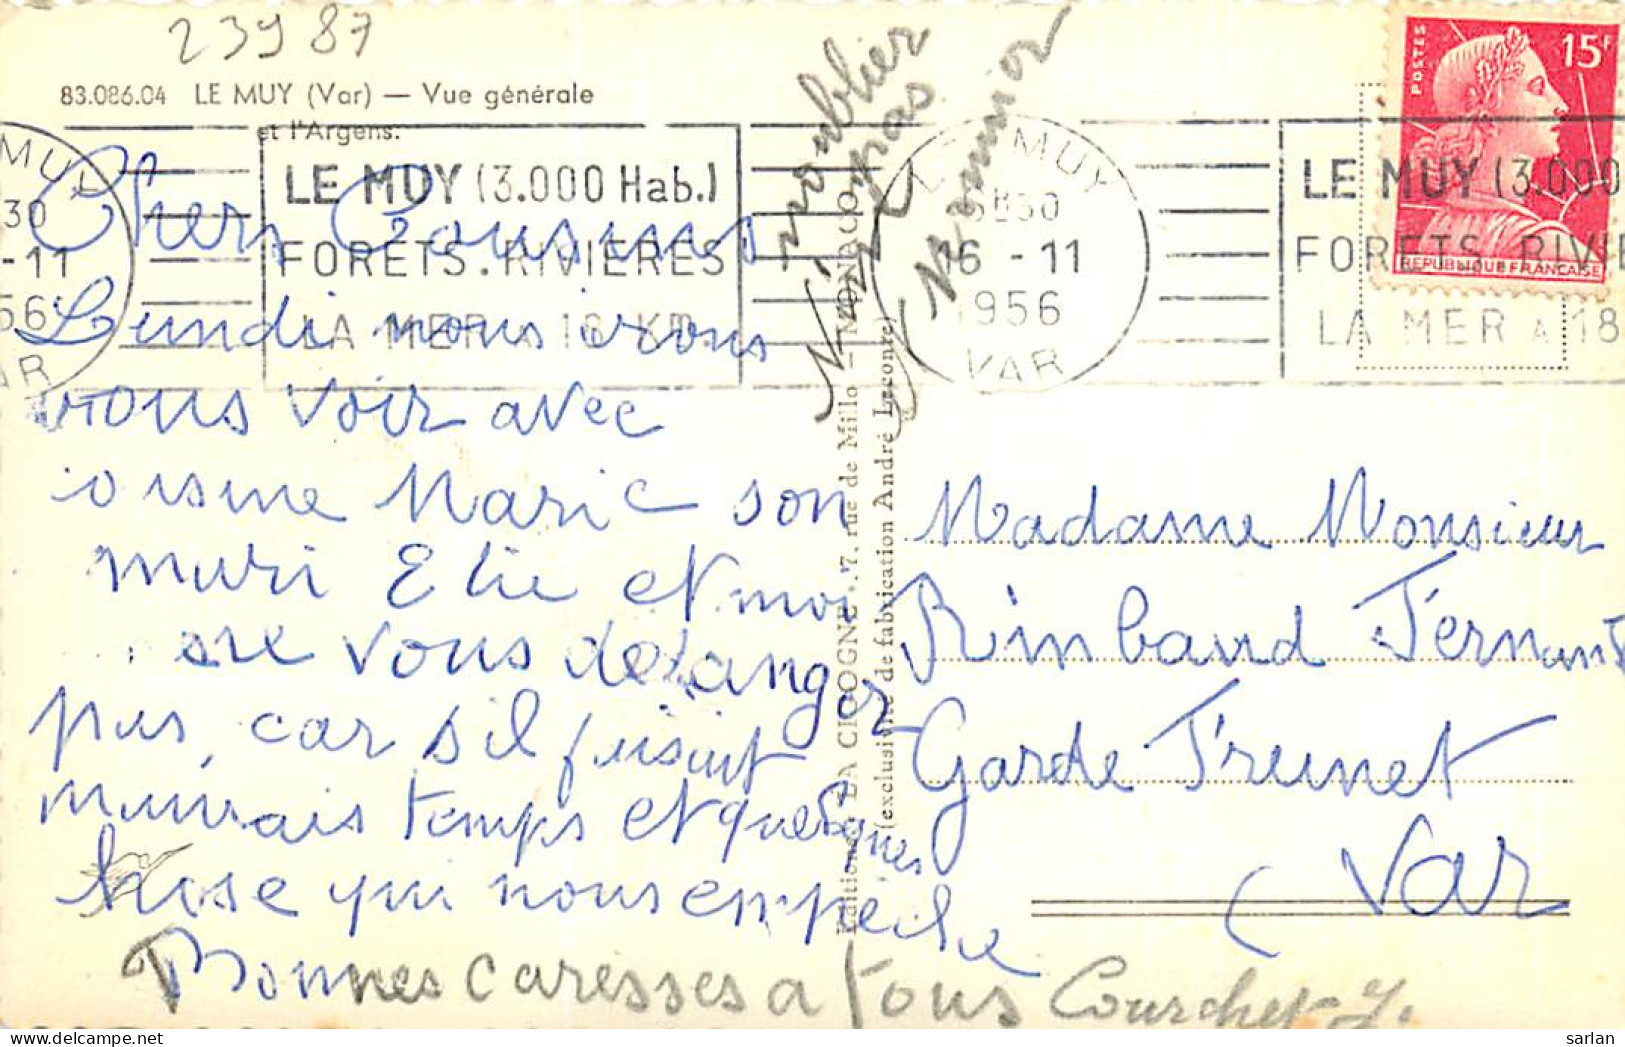 23987
83.086.04 LE MUY (Var) — Vue générale
et l'Argens.
LE MUY (3.000 Hab.)
FORETS. RIVIERES
LA MER A 18 KM
LE MUY
8H30
16 - 11
1956
VAR
LE MUY (3.000
FORETS. RIVIE
LA MER A 18
MUY
30
-11
56
AR
POSTES
15F
REPUBLIQUE FRANCAISE
Chers Cousins
Lundi nous irons
vous voir avec
Marie son
mari Elie et moi
ne vous déranger
pas, car s'il faisait
mauvais temps et quelques
chose qui nous empêche
Bonnes Caresses a tous Courchet J.
N'oublier
pas
Editions LA CIGOGNE. 7, rue de Millo — MONACO
(exclusivité de fabrication André Leconte)
Madame Monsieur
Rimbaud Fernand
Garde Freinet
(Var
sarlan